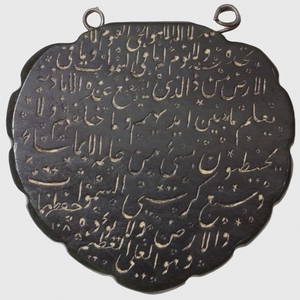 الله لا اله الا هو الحي القيوم لا
ولا نوم له ما في السموات وما في
الارض من ذا الذي يشفع عنده الا باذنه
يعلم ما بين ايديهم وما خلفهم ولا
يحيطون بشئ من علمه الا بما شاء
وسع كرسيه السموات
والارض ولا يؤده حفظهما
وهو العلي العظيم